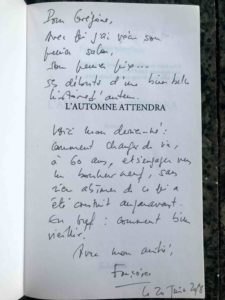 Pour Grégoire,
Avec qui j'ai vécu son
premier salon,
Son premier prix...
et débuts d'une bien belle
histoire d'auteur.
L'AUTOMNE ATTENDRA
Voici mon dernier né :
comment changer de vie,
à 60 ans, et s'engager vers
un bonheur neuf, sans
rien abîmer de ce qui a
été construit auparavant.
En bref : comment bien
vieillir.
Avec mon amitié,
Françoise
le 24 Juin